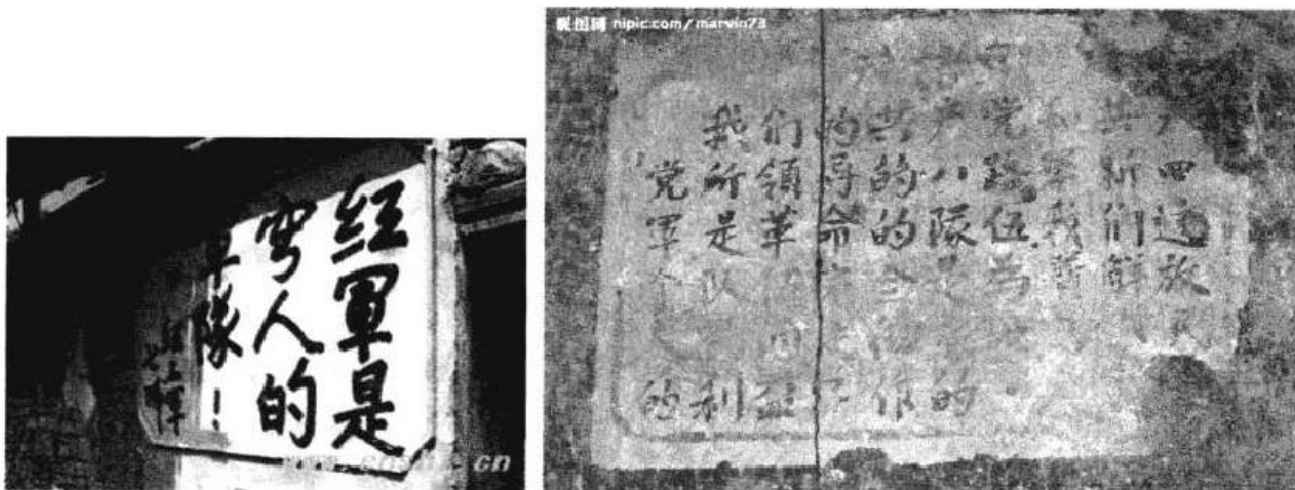 紅軍是
穷人的
軍隊！
昵图网 nipic.com/marwin73
我们的共产党和共产
党所領导的八路军新四
軍是革命的隊伍我们这
个队伍完全是为着解放
的利益工作的